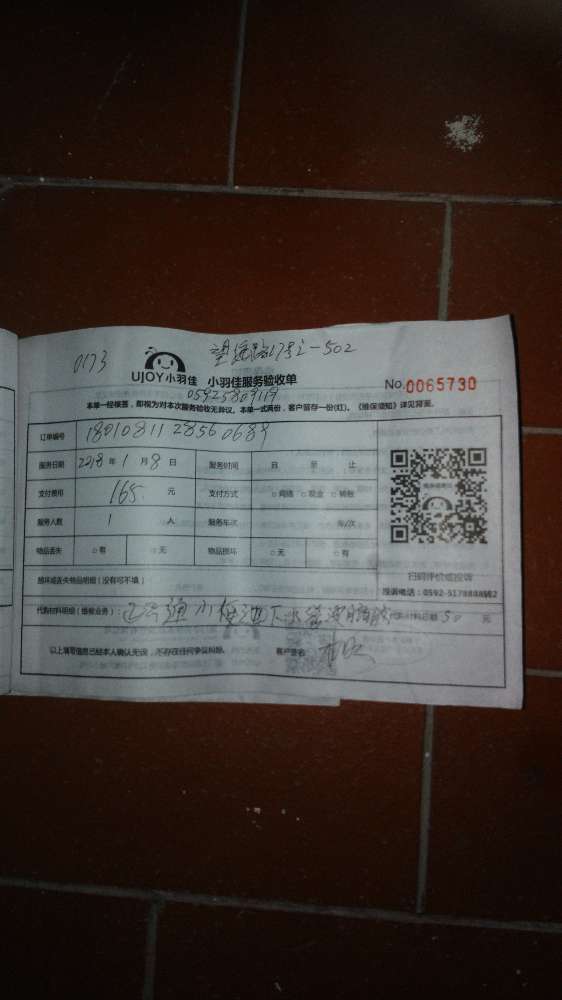 0173
UJOY小羽佳 小羽佳服务验收单
No.0065730
05925809119
本单一经核签，即视为对本次服务验收无异议。本单一式两份，客户留存一份(红)。《维保须知》详见背面。
订单编号
服务日期 2018 年 1 月 8 日 服务时间 自 至 止
支付费用 165 元 支付方式 □网络 □现金 □转账
服务人数 1 人 服务车次 车/次
物品丢失 □有 □无 物品损坏 □无 □有
损坏或丢失物品明细（没有可不填）
扫码评价或投诉
代购材料明细（维修业务）： 下水管 代购材料总额 50 元
以上填写信息已经本人确认无误，不存在任何争议纠纷。 客户签名：